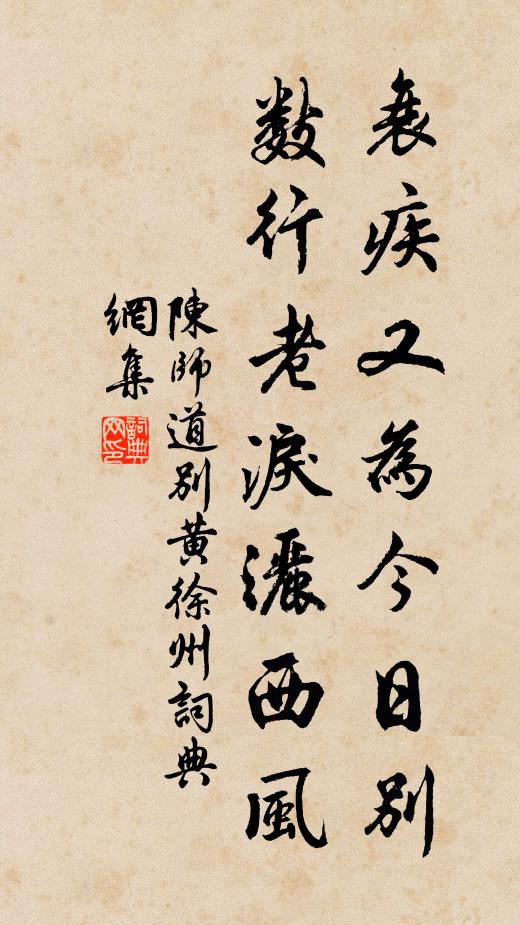 衰疾又為今日別
數行老淚灑西風
陳師道別黃徐州詞典
網集
詞典網印